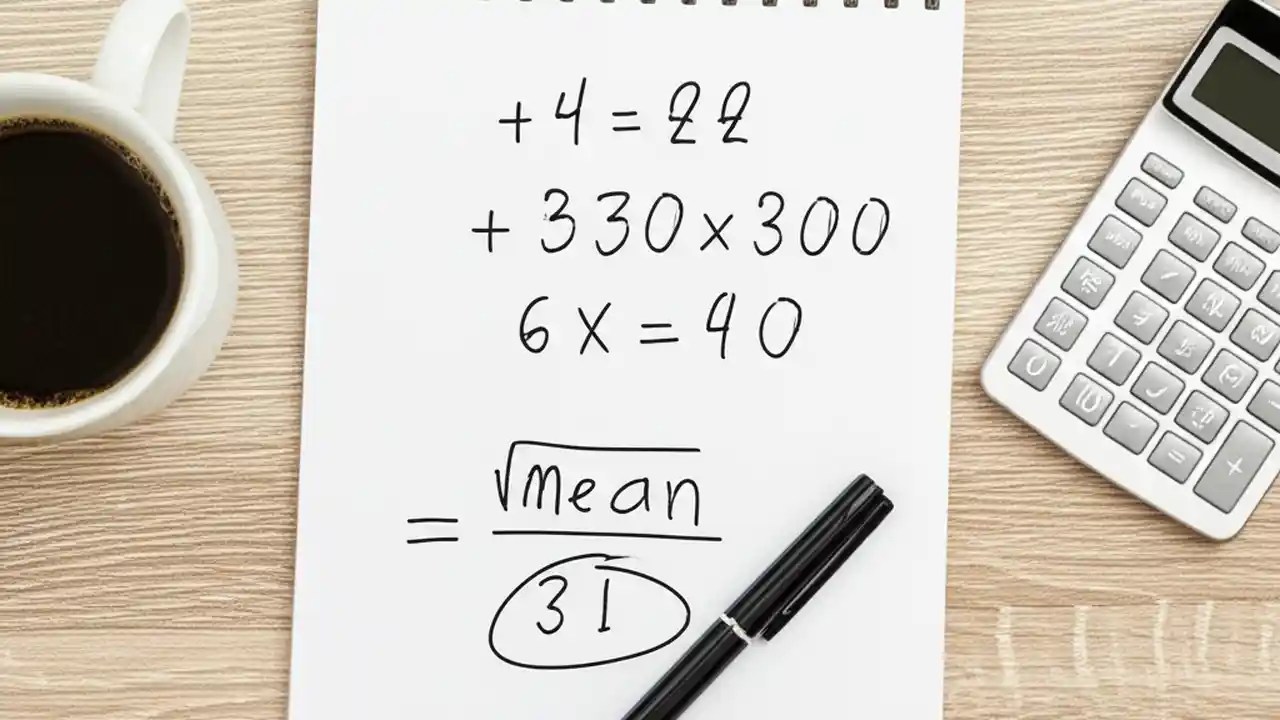 + 4 = 22
+ 330 × 300
6 x = 40
√mean
=
31